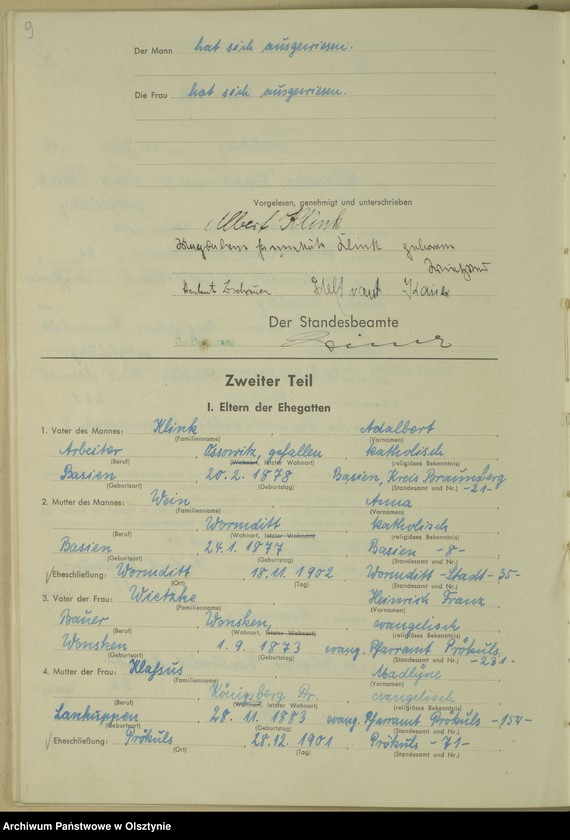 9
Der Mann hat sich ausgewiesen.
Die Frau hat sich ausgewiesen.
Vorgelesen, genehmigt und unterschrieben
Albert Klink
Klink geborene
Der Standesbeamte
Zweiter Teil
I. Eltern der Ehegatten
1. Vater des Mannes: Klink Adalbert
(Familienname) (Vornamen)
Arbeiter, gefallen katholisch
(Beruf) (Wohnort, letzter Wohnort) (religiöses Bekenntnis)
Basien, 20.2.1878 Basien, Kreis Braunsberg -21-
(Geburtsort) (Geburtstag) (Standesamt und Nr.)
2. Mutter des Mannes: Wein Anna
(Familienname) (Vornamen)
Wormditt katholisch
(Beruf) (Wohnort, letzter Wohnort) (religiöses Bekenntnis)
Basien, 24.1.1877 Basien -8-
(Geburtsort) (Geburtstag) (Standesamt und Nr.)
Eheschließung: Wormditt, 18.11.1902 Wormditt-Stadt-35-
(Ort) (Tag) (Standesamt und Nr.)
3. Vater der Frau: Heinrich Franz
(Familienname) (Vornamen)
Bauer, Wonsken, evangelisch
(Beruf) (Wohnort, letzter Wohnort) (religiöses Bekenntnis)
Wonsken, 1.9.1873 evang. Pfarramt Prökuls -231-
(Geburtsort) (Geburtstag) (Standesamt und Nr.)
4. Mutter der Frau: Madlyne
(Familienname) (Vornamen)
Königsberg Pr. evangelisch
(Beruf) (Wohnort, letzter Wohnort) (religiöses Bekenntnis)
Lankuppen, 28.11.1883 evang. Pfarramt Prökuls -154-
(Geburtsort) (Geburtstag) (Standesamt und Nr.)
Eheschließung: Prökuls, 28.12.1901 Prökuls -71-
(Ort) (Tag) (Standesamt und Nr.)
Archiwum Państwowe w Olsztynie